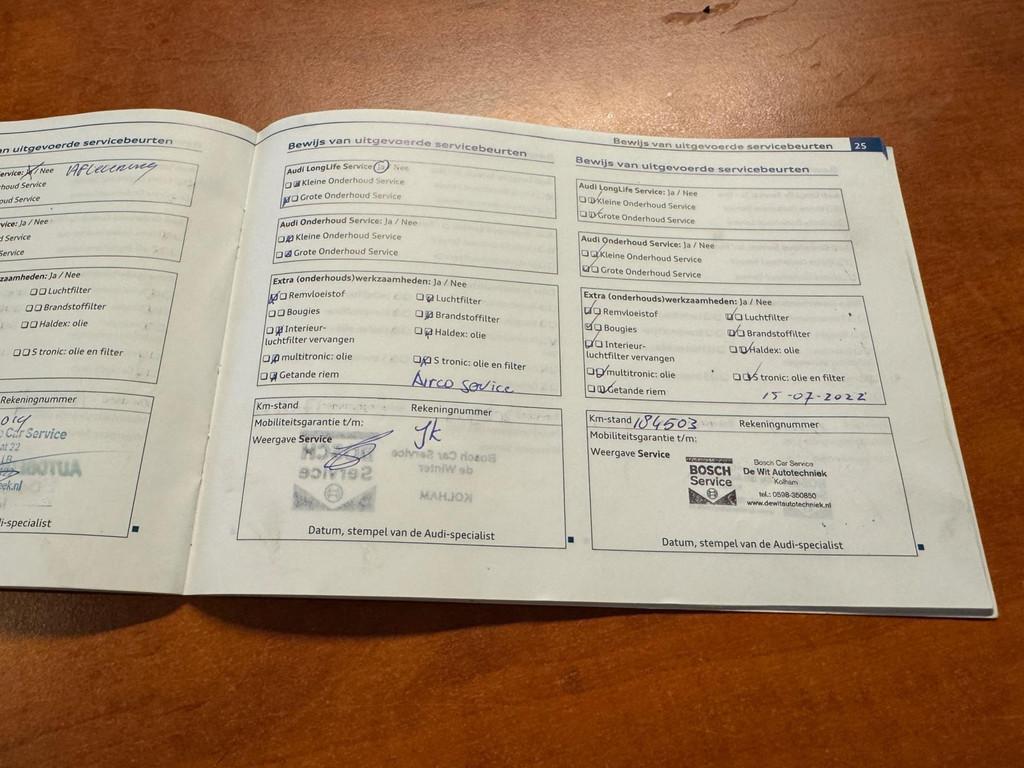 an uitgevoerde servicebeurten
ervice: Ja/Nee Aflevering
houd Service
oud Service
vice: Ja / Nee
d Service
ervice
zaamheden: Ja / Nee
Luchtfilter
Brandstoffilter
Haldex: olie
S tronic: olie en filter
Rekeningnummer
Car Service
at 22
AUTOB
ek.nl
i-specialist
Bewijs van uitgevoerde servicebeurten
Audi LongLife Service: Ja / Nee
Kleine Onderhoud Service
Grote Onderhoud Service
Audi Onderhoud Service: Ja / Nee
Kleine Onderhoud Service
Grote Onderhoud Service
Extra (onderhouds)werkzaamheden: Ja / Nee
Remvloeistof
Luchtfilter
Bougies
Brandstoffilter
Interieur-
luchtfilter vervangen
Haldex: olie
multitronic: olie
S tronic: olie en filter
Getande riem
Airco Service
Km-stand
Rekeningnummer
Mobiliteitsgarantie t/m:
Weergave Service
BOSCH
Service
Bosch Car Service
de Winter
KOLHAM
Datum, stempel van de Audi-specialist
Bewijs van uitgevoerde servicebeurten 25
Bewijs van uitgevoerde servicebeurten
Audi LongLife Service: Ja / Nee
Kleine Onderhoud Service
Grote Onderhoud Service
Audi Onderhoud Service: Ja / Nee
Kleine Onderhoud Service
Grote Onderhoud Service
Extra (onderhouds)werkzaamheden: Ja / Nee
Remvloeistof
Luchtfilter
Bougies
Brandstoffilter
Interieur-
luchtfilter vervangen
Haldex: olie
multitronic: olie
S tronic: olie en filter
Getande riem
15-07-2022
Km-stand 184503 Rekeningnummer
Mobiliteitsgarantie t/m:
Weergave Service
BOSCH
Service
Bosch Car Service
De Wit Autotechniek
Kolham
tel.: 0598-350850
www.dewitautotechniek.nl
Datum, stempel van de Audi-specialist